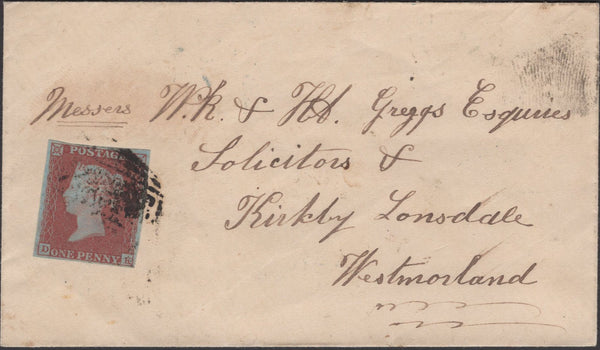 Messers W.R. & Hy. Greggs Esquires
Solicitors &
Kirkby Lonsdale
Westmorland
POSTAGE
D ONE PENNY K